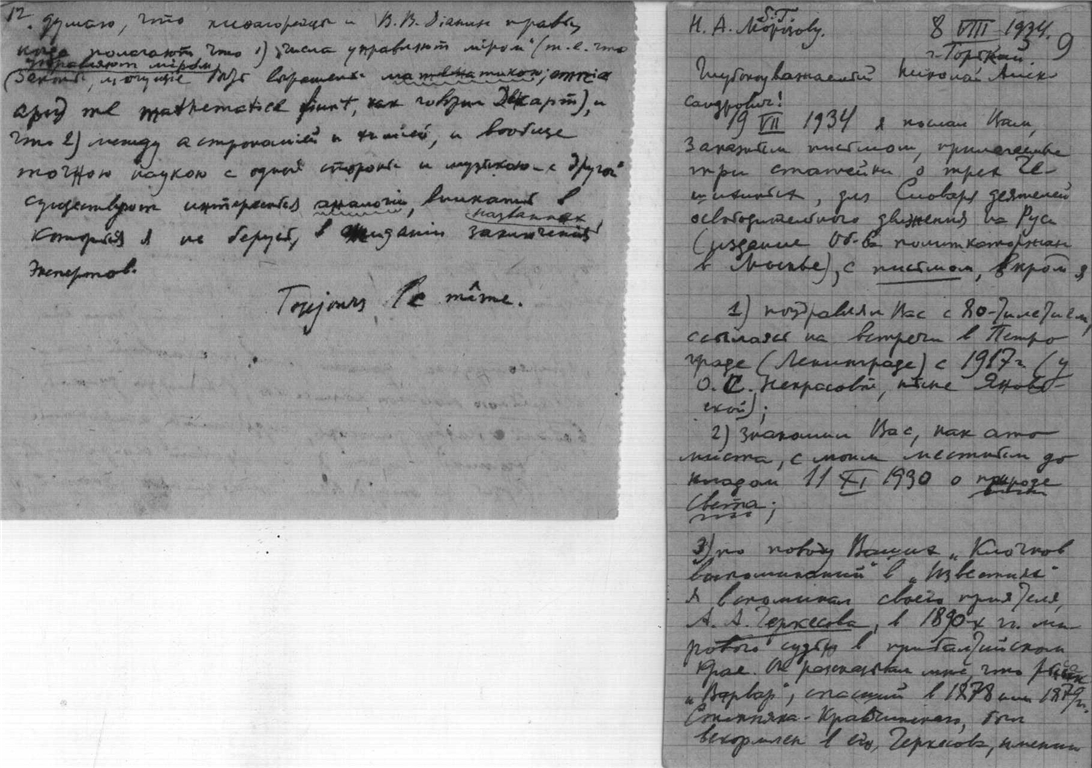 12. думаю, что пифагорейцы и В.В. Дianин правы,
когда полагают что 1) "числа управляют мiром" (т.е. что
управляют мiром
(законы, могущие быть выражены математикой; omnia
apud me mathematica fiunt, как говорил Декарт), и
что 2) между астрономией и химией, и вообще
точною наукою с одной стороны и музыкою с другой
существуют интересныя аналогии, вникать в
названных
которыя я не берусь, в ожидании заключения
экспертов.
Toujours le même.
Н. А. Морозову. 8 VIII 1934. 9
г. Торжкий.
Глубокоуважаемый Николай Алек
сандрович!
19 VII 1934 я послал Вам,
заказным письмом,
три статейки о трех
для Словаря деятелей
освободительного движения на Руси
(издание Об-ва политкаторжан
в Москве), с письмом, в кром я
1) поздравлял Вас с 80-тилетием,
ссылаясь на встречи в Петро
граде (Ленинграде) с 1917 г. (у
О. С. Некрасовой, ныне Янов
ской);
2) знакомил Вас, как ато
миста, с моим местным до
кладом 11 XI 1930 о природе
света;
3) по поводу Ваших "Клочков
воспоминаний" в "Известиях"
я вспоминал своего приятеля,
А. А. Черкесова, в 1890-х гг. ми
рового судью в прибалтийском
крае. Он рассказывал мне, что рысак
"Варвар", спасший в 1878 или 1879 г.
Степняка-Кравчинского, был
вскормлен в его, Черкесова, имении